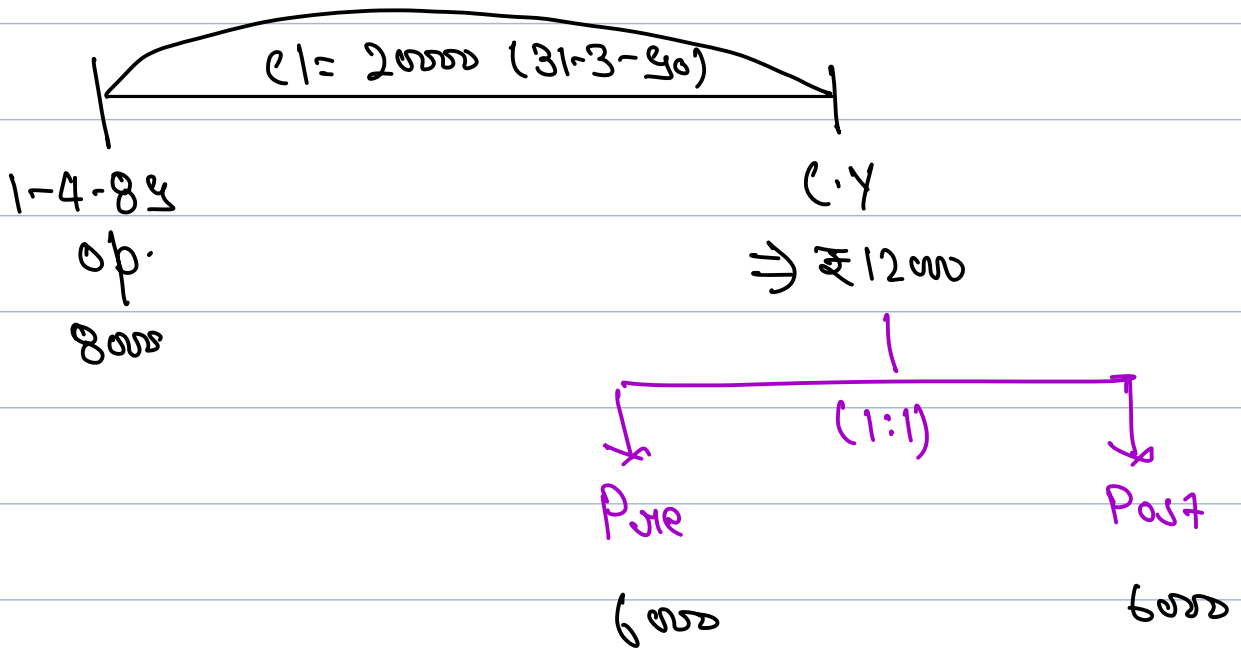 Cl = 20000 (31-3-90)
1-4-89
C.Y
op.
⇒ ₹12000
8000
(1:1)
Pre
Post
6000
6000